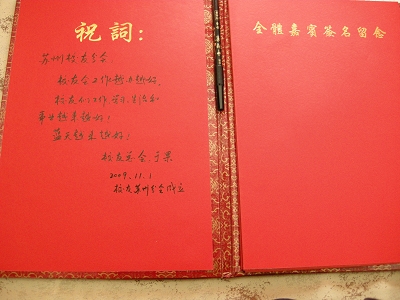 祝詞:
苏州校友分会
校友会工作越办越好.
校友们工作、学习、生活和
事业越来越好!
蓝天越来越好!
校友总会 于果
2009.11.1
校友苏州分会成立
全體嘉賓簽名留念